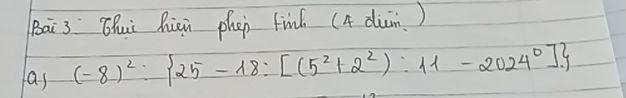 Bài 3: Thực hiện phép tính (4 điểm.)
a, (-8)² : {25 - 18 : [(5² + 2²) : 11 - 2024⁰]}